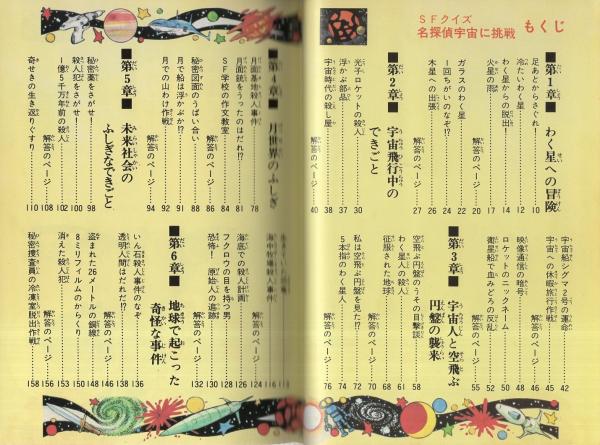 SFクイズ
名探偵宇宙に挑戦
もくじ
■第1章■ わく星への冒険
足あとからさぐれ!……10
冷たいわく星……12
わく星からの脱出……14
火星の雨……17
解答のページ……20
ガラスのわく星……22
1回ちがいのなぞ!?……24
木星への出張……26
解答のページ……27
■第2章■ 宇宙飛行中の
できごと
光子ロケットの殺人……30
浮かぶ部品……37
宇宙時代の殺し屋……38
解答のページ……40
宇宙船シグマ2号の運命……42
宇宙への休暇旅行作戦……45
解答のページ……48
映像通信の暗号……49
ロケットのニックネーム……50
衛星船で血みどろの反乱……52
解答のページ……55
■第3章■ 宇宙人と空飛ぶ
円盤の襲来
空飛ぶ円盤のうその目撃談……58
わく星人の殺人……61
征服された地球……68
解答のページ……70
私は空飛ぶ円盤を見た!?……72
5本指のわく星人……74
解答のページ……76
■第4章■ 月世界のふしぎ
月面基地殺人事件……78
月面銃をうったのはだれ!?……81
SF学校の作文教室……84
解答のページ……86
秘密図面のうばい合い……88
月で船は浮かぶか!?……91
月での山わけ作戦……92
解答のページ……94
■第5章■ 未来社会の
ふしぎなできごと
秘密薬をさがせ!……98
殺人犯をさがせ!……100
1億5千万年前の殺人……102
解答のページ……108
奇せきの生き返りぐすり……110
116
海中牧場殺人事件……118
解答のページ……124
海底の殺人計画……126
フクロウの目を持つ男……128
恐怖! 原始人の追跡……130
解答のページ……132
■第6章■ 地球で起こった
奇怪な事件
いん石殺人事件のなぞ……136
透明人間はだれだ!?……138
解答のページ……146
盗まれた26メートルの鋼線……148
8ミリフィルムのからくり……150
消えた殺人犯……153
解答のページ……156
秘密捜査員の冷凍室脱出作戦……158